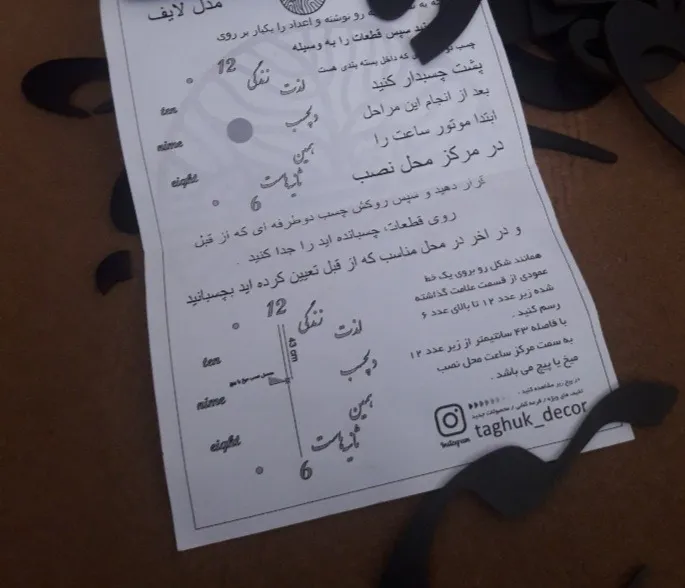 مدل لایف
رو نوشته و اعداد را یکبار بر روی
سپس قطعات را به وسیله
که داخل بسته بندی هست
پشت چسبدار کنید
بعد از انجام این مراحل
ابتدا موتور ساعت را
در مرکز محل نصب
قرار دهید و سپس روکش چسب دوطرفه ای که از قبل
روی قطعات چسبانده اید را جدا کنید .
و در اخر در محل مناسب که از قبل تعیین کرده اید بچسبانید
12
زندگی
لذت
ten
دلچسب
nine
همین
eight
ثانیه‌هاست
6
همانند شکل رو بروی یک خط
عمودی از قسمت علامت گذاشته
شده زیر عدد ۱۲ تا بالای عدد ۶
رسم کنید .
با فاصله ۴۳ سانتیمتر از زیر عدد ۱۲
به سمت مرکز ساعت محل نصب
میخ یا پیچ می باشد .
در پیج زیر مشاهده کنید .
تخفیف های ویژه / قرعه کشی / محصولات جدید
Instagram
taghuk_decor
12
زندگی
لذت
43 cm
ten
دلچسب
nine
همین
eight
ثانیه‌هاست
6